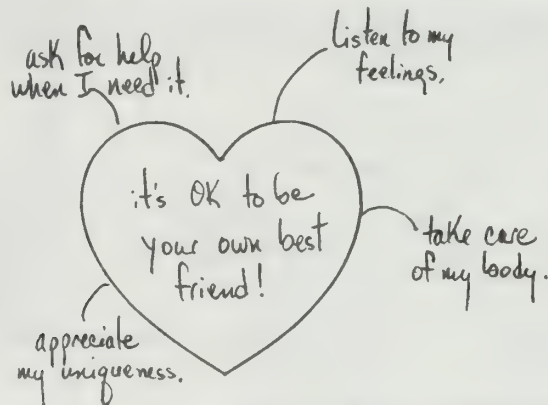 ask for help
when I need it.
listen to my
feelings.
it's OK to be
your own best
friend!
take care
of my body.
appreciate
my uniqueness.